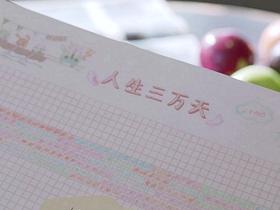 人生三万天